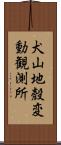 犬山地殻変
動観測所